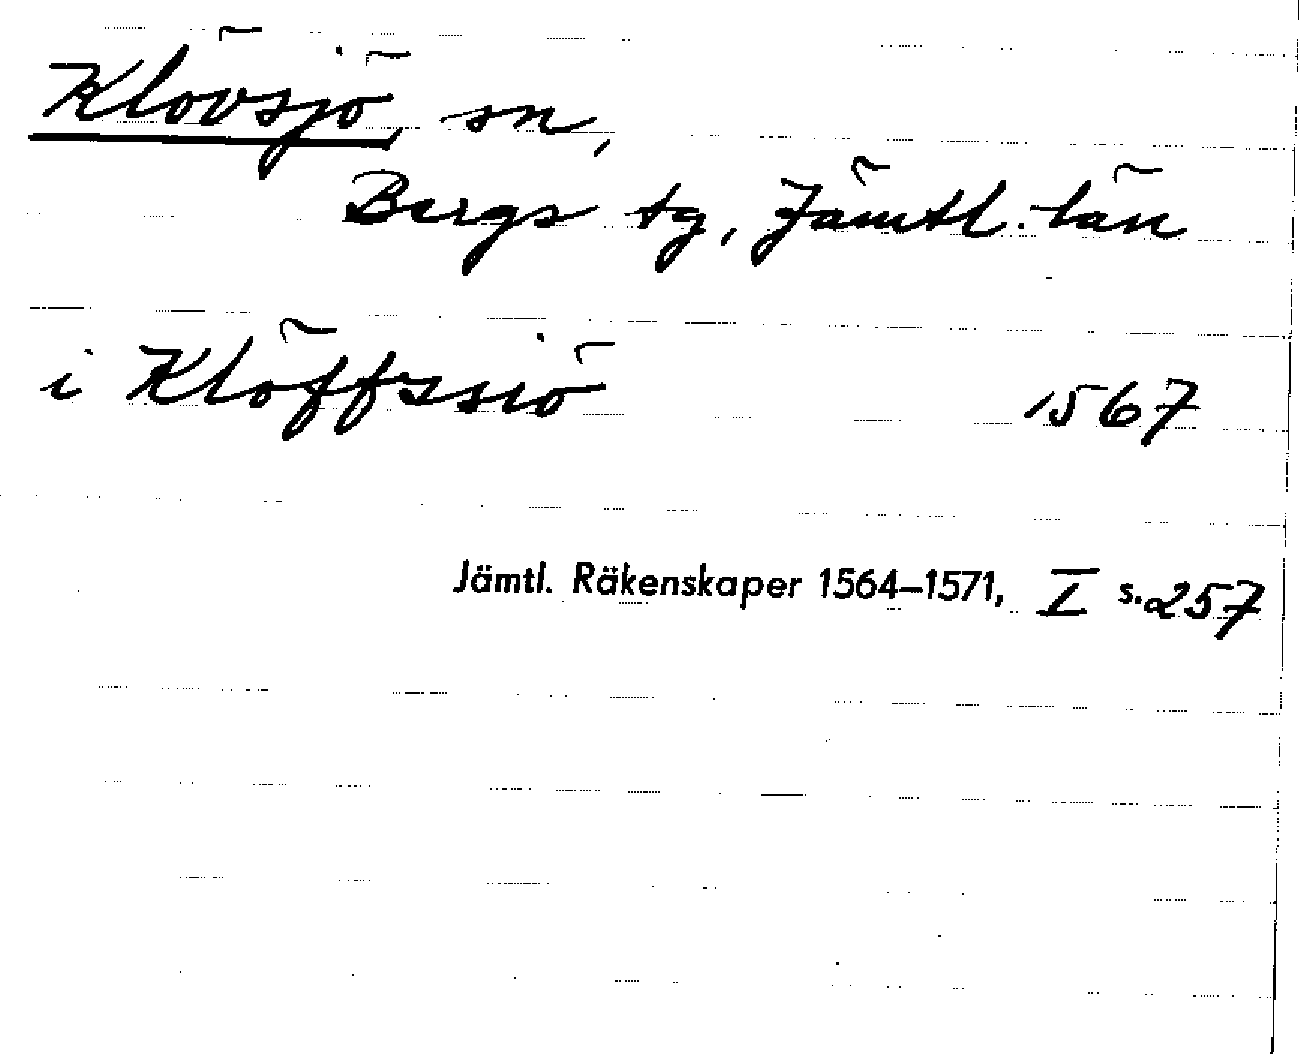 Klövsjö, sn,
Bergs tg, Jämtl. län
i Klöffssiö 1567
Jämtl. Räkenskaper 1564–1571, I s. 257